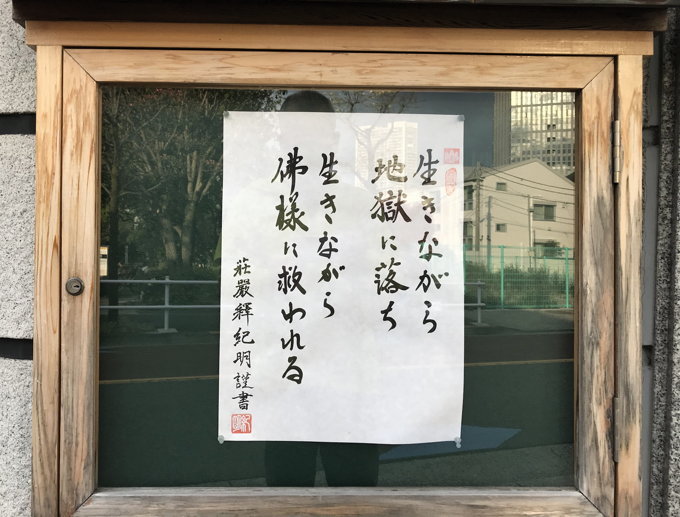 生きながら
地獄に落ち
生きながら
佛様に救われる
荘嚴釋紀明謹書